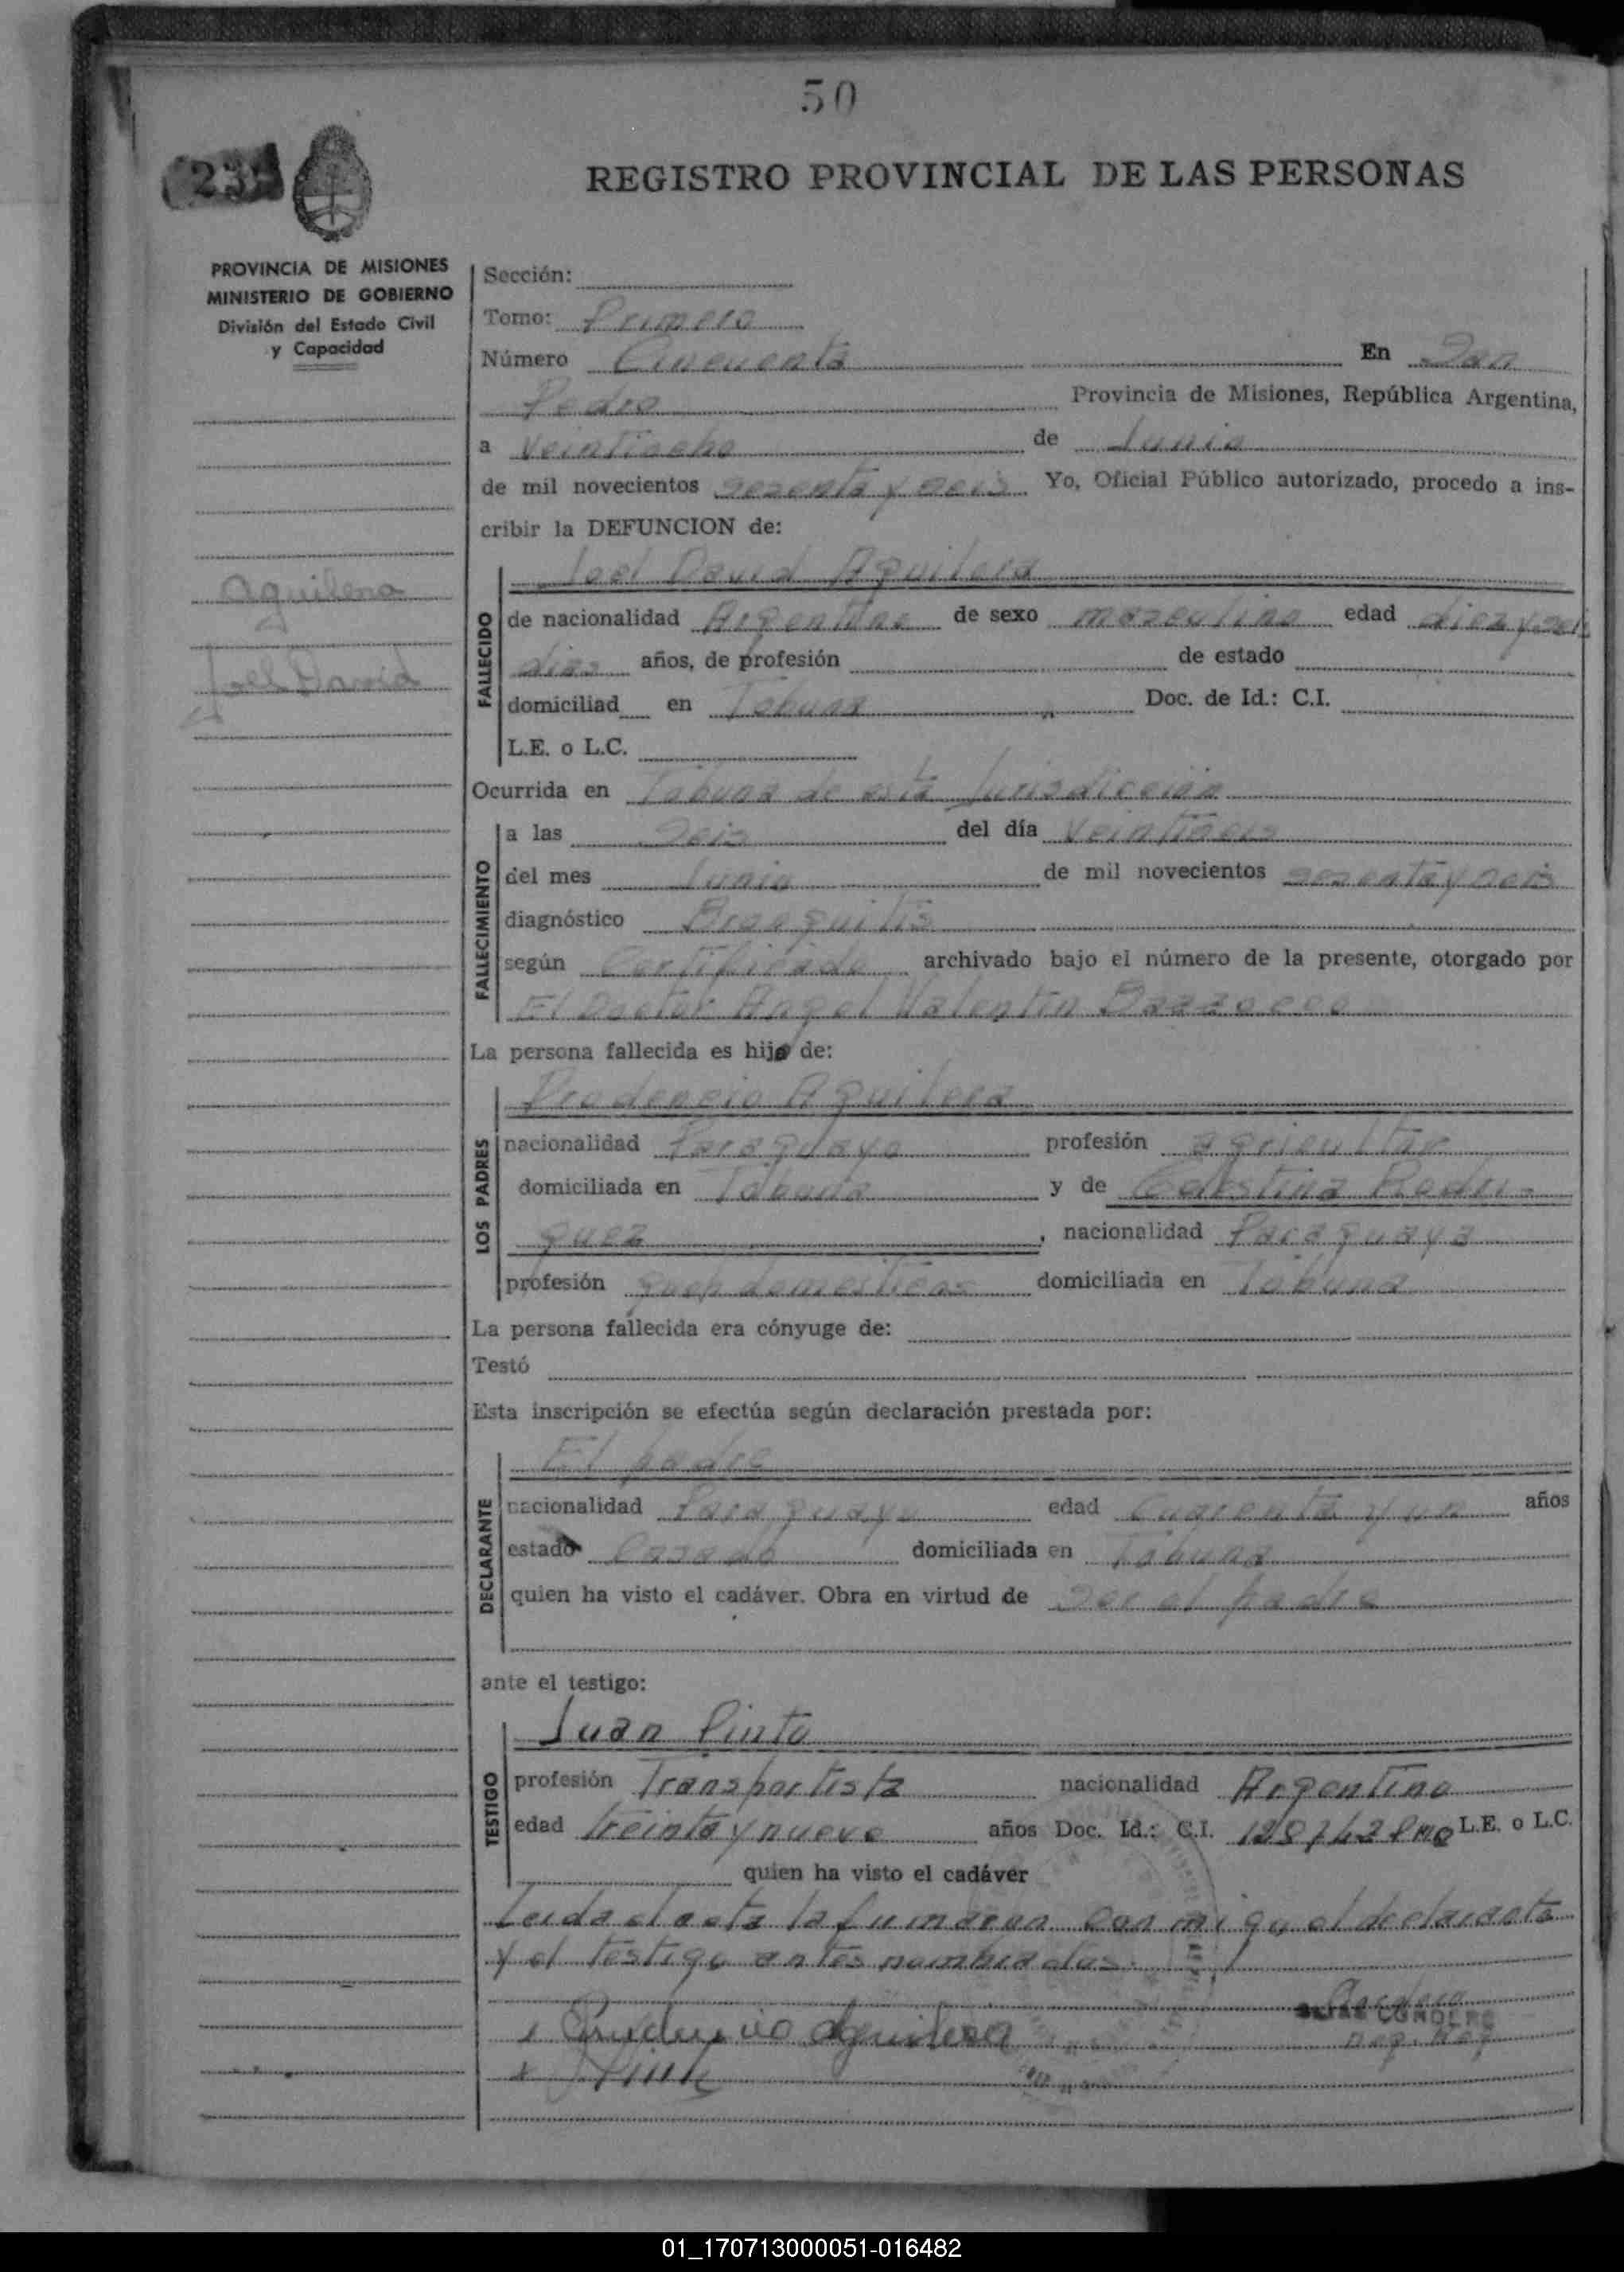 50
REGISTRO PROVINCIAL DE LAS PERSONAS
PROVINCIA DE MISIONES
MINISTERIO DE GOBIERNO
División del Estado Civil
y Capacidad
Aguilera
Joel David
Sección:
Tomo: Primero
Número Cincuenta En San
Pedro Provincia de Misiones, República Argentina,
a veintiocho de Junio
de mil novecientos sesenta y seis Yo, Oficial Público autorizado, procedo a ins-
cribir la DEFUNCION de:
Joel David Aguilera
FALLECIDO
de nacionalidad Argentino de sexo masculino edad diez y seis
dias años, de profesión de estado
domiciliad en Tobuna Doc. de Id.: C.I.
L.E. o L.C.
Ocurrida en Tobuna de esta Jurisdiccion
FALLECIMIENTO
a las Seis del día Veintiseis
del mes Junio de mil novecientos sesenta y seis
diagnóstico Bronquitis
según Certificado archivado bajo el número de la presente, otorgado por
El Doctor Angel Valentin
La persona fallecida es hijo de:
LOS PADRES
Prudencio Aguilera
nacionalidad Paraguayo profesión agricultor
domiciliada en Tobuna y de Celestina Rodri-
guez, nacionalidad Paraguaya
profesión queh domesticos domiciliada en Tobuna
La persona fallecida era cónyuge de:
Testó
Esta inscripción se efectúa según declaración prestada por:
DECLARANTE
El padre
nacionalidad Paraguayo edad Cuarenta y un años
estado Casado domiciliada en Tobuna
quien ha visto el cadáver. Obra en virtud de ser el padre
ante el testigo:
TESTIGO
Juan Pinto
profesión Transportista nacionalidad Argentino
edad treinta y nueve años Doc. Id.: C.I. L.E. o L.C.
quien ha visto el cadáver
Leida el acta la firmaron conmigo el declarante
y el testigo antes nombrados.
Prudencio Aguilera
01_170713000051-016482